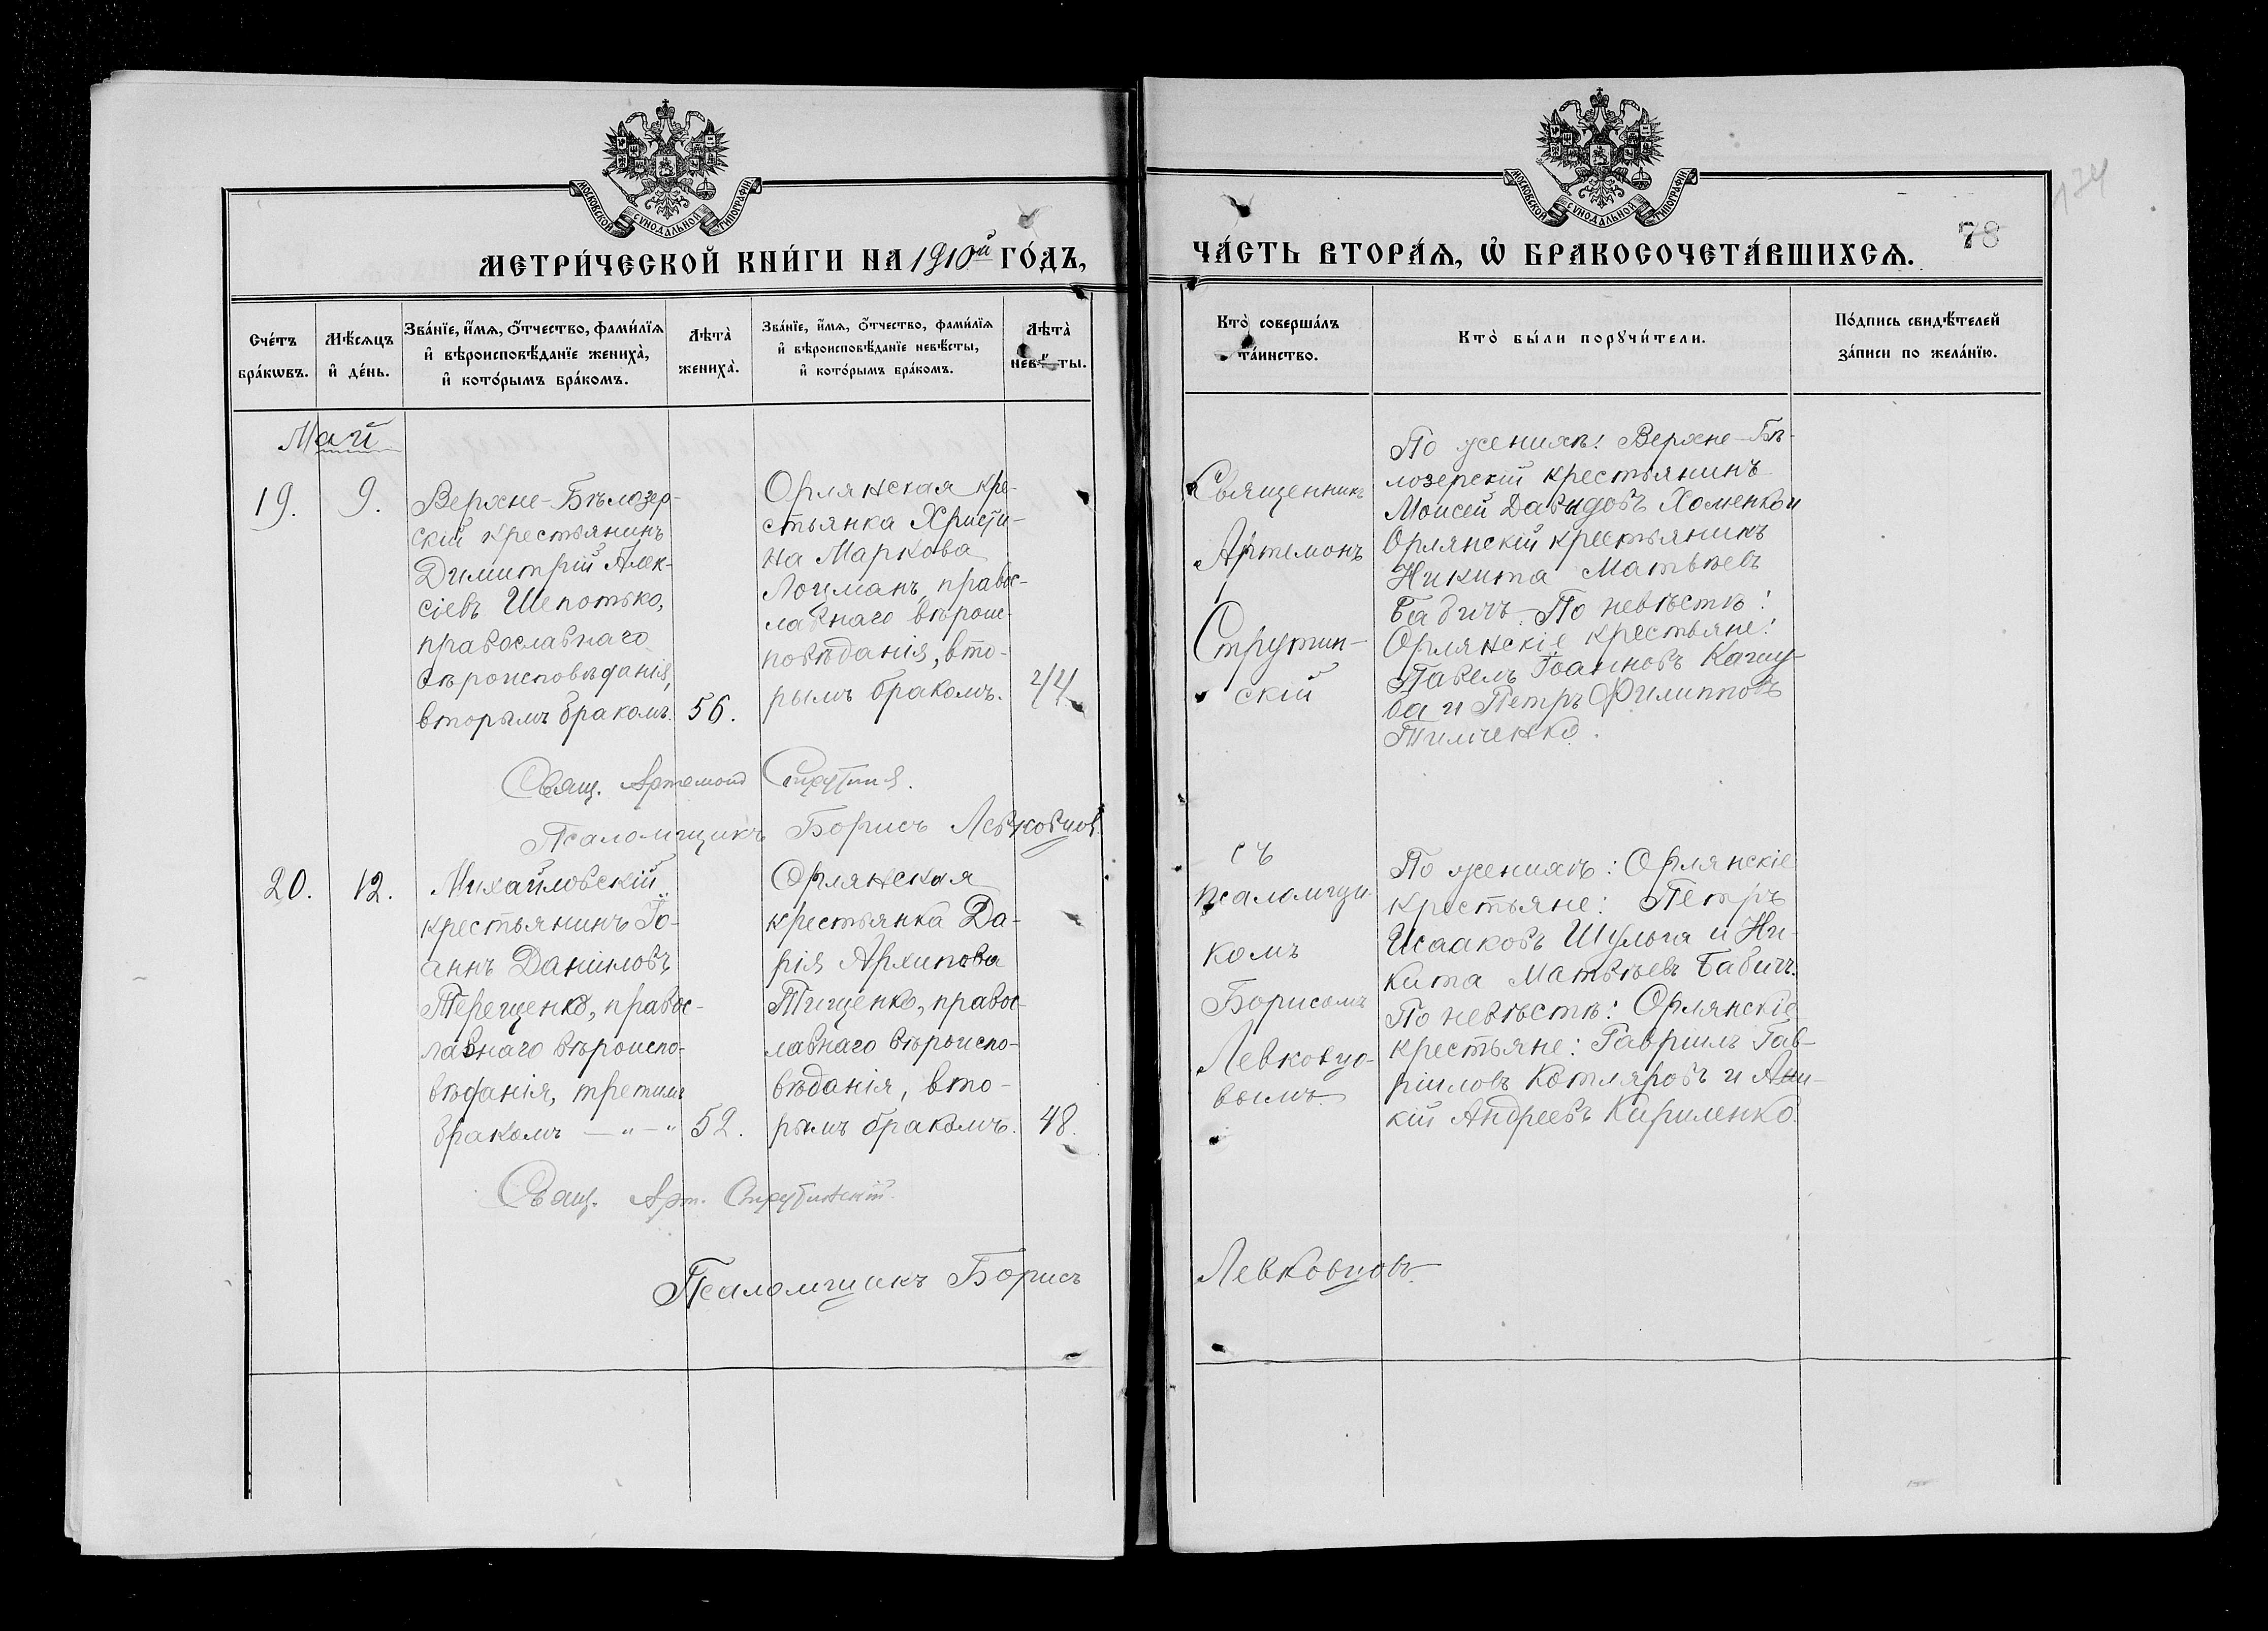 МОСКОВСКОЙ СУНОДАЛЬНОЙ ТИПОГРАФІИ
МЕТРИ́ЧЕСКОЙ КНИ́ГИ НА 1910й ГО́ДЪ,
Сче́тъ бра́кѡвъ.
Мѣ́сяцъ и҆ де́нь.
Зва́нїе, и҆́мѧ, ѻ҆́тчество, фами́лїѧ
и҆ вѣроисповѣ́данїе жениха̀,
и҆ кото́рымъ бра́комъ.
Лѣта̀ жениха̀.
Зва́нїе, и҆́мѧ, ѻ҆́тчество, фами́лїѧ
и҆ вѣроисповѣ́данїе невѣ́сты,
и҆ кото́рымъ бра́комъ.
Лѣта̀ невѣ́сты.
Май
19.
9.
Верхне-Бѣлозер-
скій крестьянинъ
Димитрій Алек-
сіевъ Шепотько,
православнаго
вѣроисповѣданія,
вторымъ бракомъ.
56.
Орлянская кре-
стьянка Христи-
на Маркова
Лоцманъ, правос-
лавнаго вѣроис-
повѣданія, вто-
рымъ бракомъ.
44.
Свящ. Артемонъ
Псаломщикъ Борисъ Левковцов
20.
12.
Михайловскій
крестьянинъ Іо-
аннъ Даніиловъ
Терещенко, правос-
лавнаго вѣроиспо-
вѣданія, третьимъ
бракомъ — " — "
52.
Орлянская
крестьянка Да-
рія Архипова
Тищенко, правос-
лавнаго вѣроиспо-
вѣданія, вто-
рымъ бракомъ.
48.
Свящ. Арт. Струтинскій
Псаломщикъ Борисъ
МОСКОВСКОЙ СУНОДАЛЬНОЙ ТИПОГРАФІИ
174
78
ЧА́СТЬ ВТОРА́Ѧ, Ѽ БРАКОСОЧЕТА́ВШИХСѦ.
Кто̀ соверша́лъ та́инство.
Кто̀ бы́ли порꙋчи́тели.
По́дпись свидѣ́телей
за́писи по жела́нїю.
Священникъ
Артемонъ
Струтин-
скій
съ
псаломщи-
комъ
Борисомъ
Левковцо-
вымъ.
По женихѣ: Верхне-Бѣ-
лозерскій крестьянинъ
Моисей Давидовъ Хоменко и
Орлянскій крестьянинъ
Никита Матвѣевъ
Бабичъ. По невѣстѣ:
Орлянскіе крестьяне:
Павелъ Іоанновъ Качу-
ва и Петръ Филипповъ
Тимченко.
По женихѣ: Орлянскіе
крестьяне: Петръ
Исааковъ Шульга и Ни-
кита Матвѣевъ Бабичъ.
По невѣстѣ: Орлянскіе
крестьяне: Гавріилъ Гав-
ріиловъ Котляровъ и
Андреевъ Кириленко.
Левковцовъ.